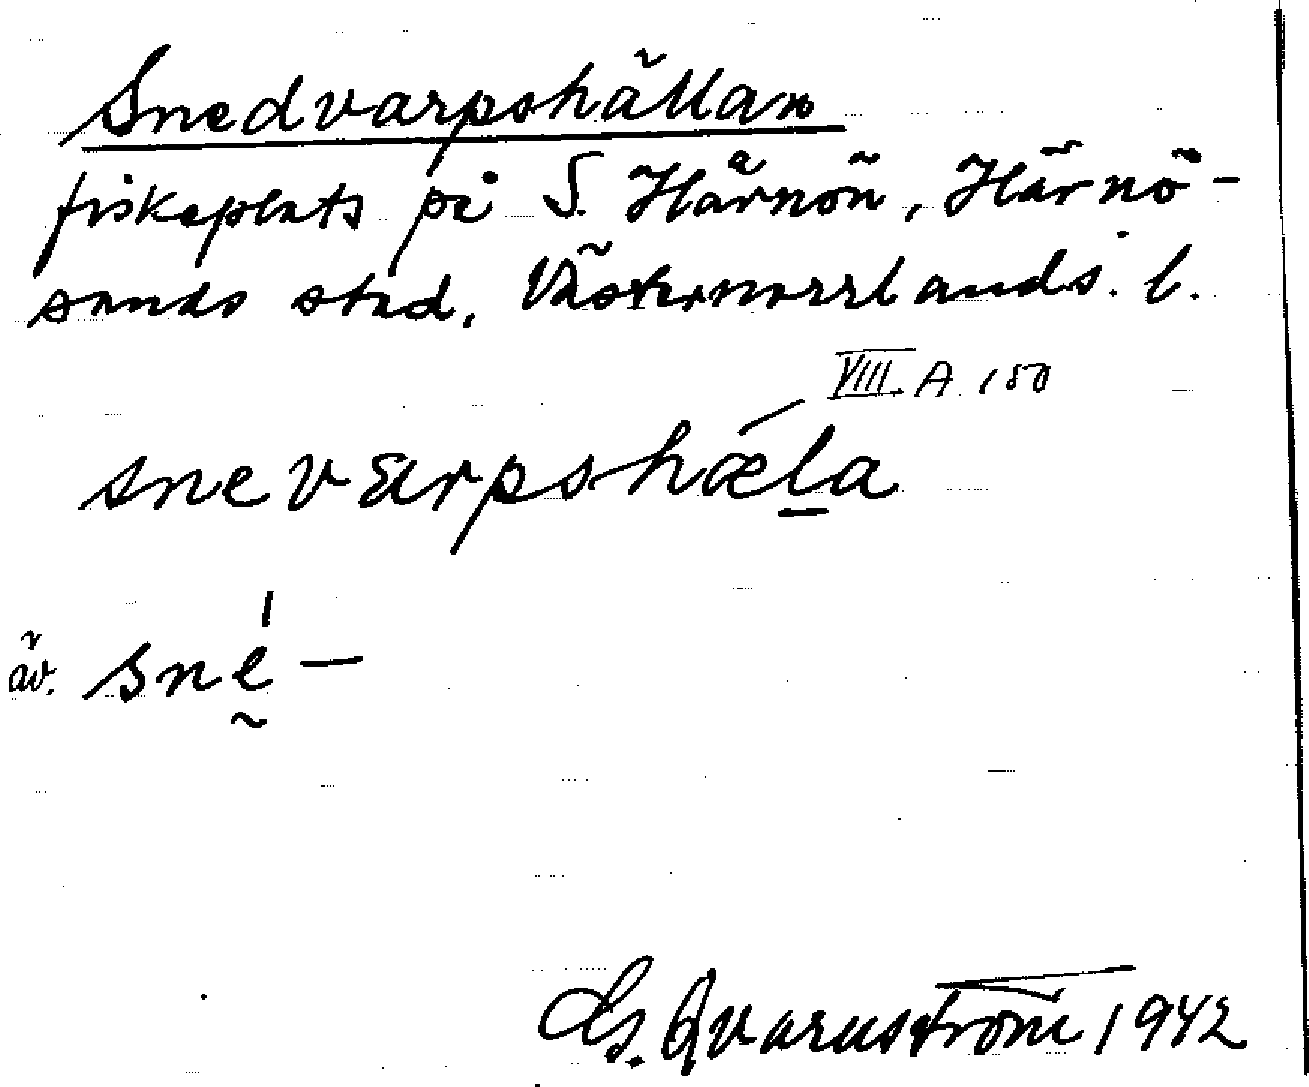 Snedvarpshällan
fiskeplats på S. Härnön, Härnö-
sands stad, Västernorrlands. l.
VIII. A. 150
snevarpshǽḻa
äv. snḛ́ —
G. Qvarnström 1942